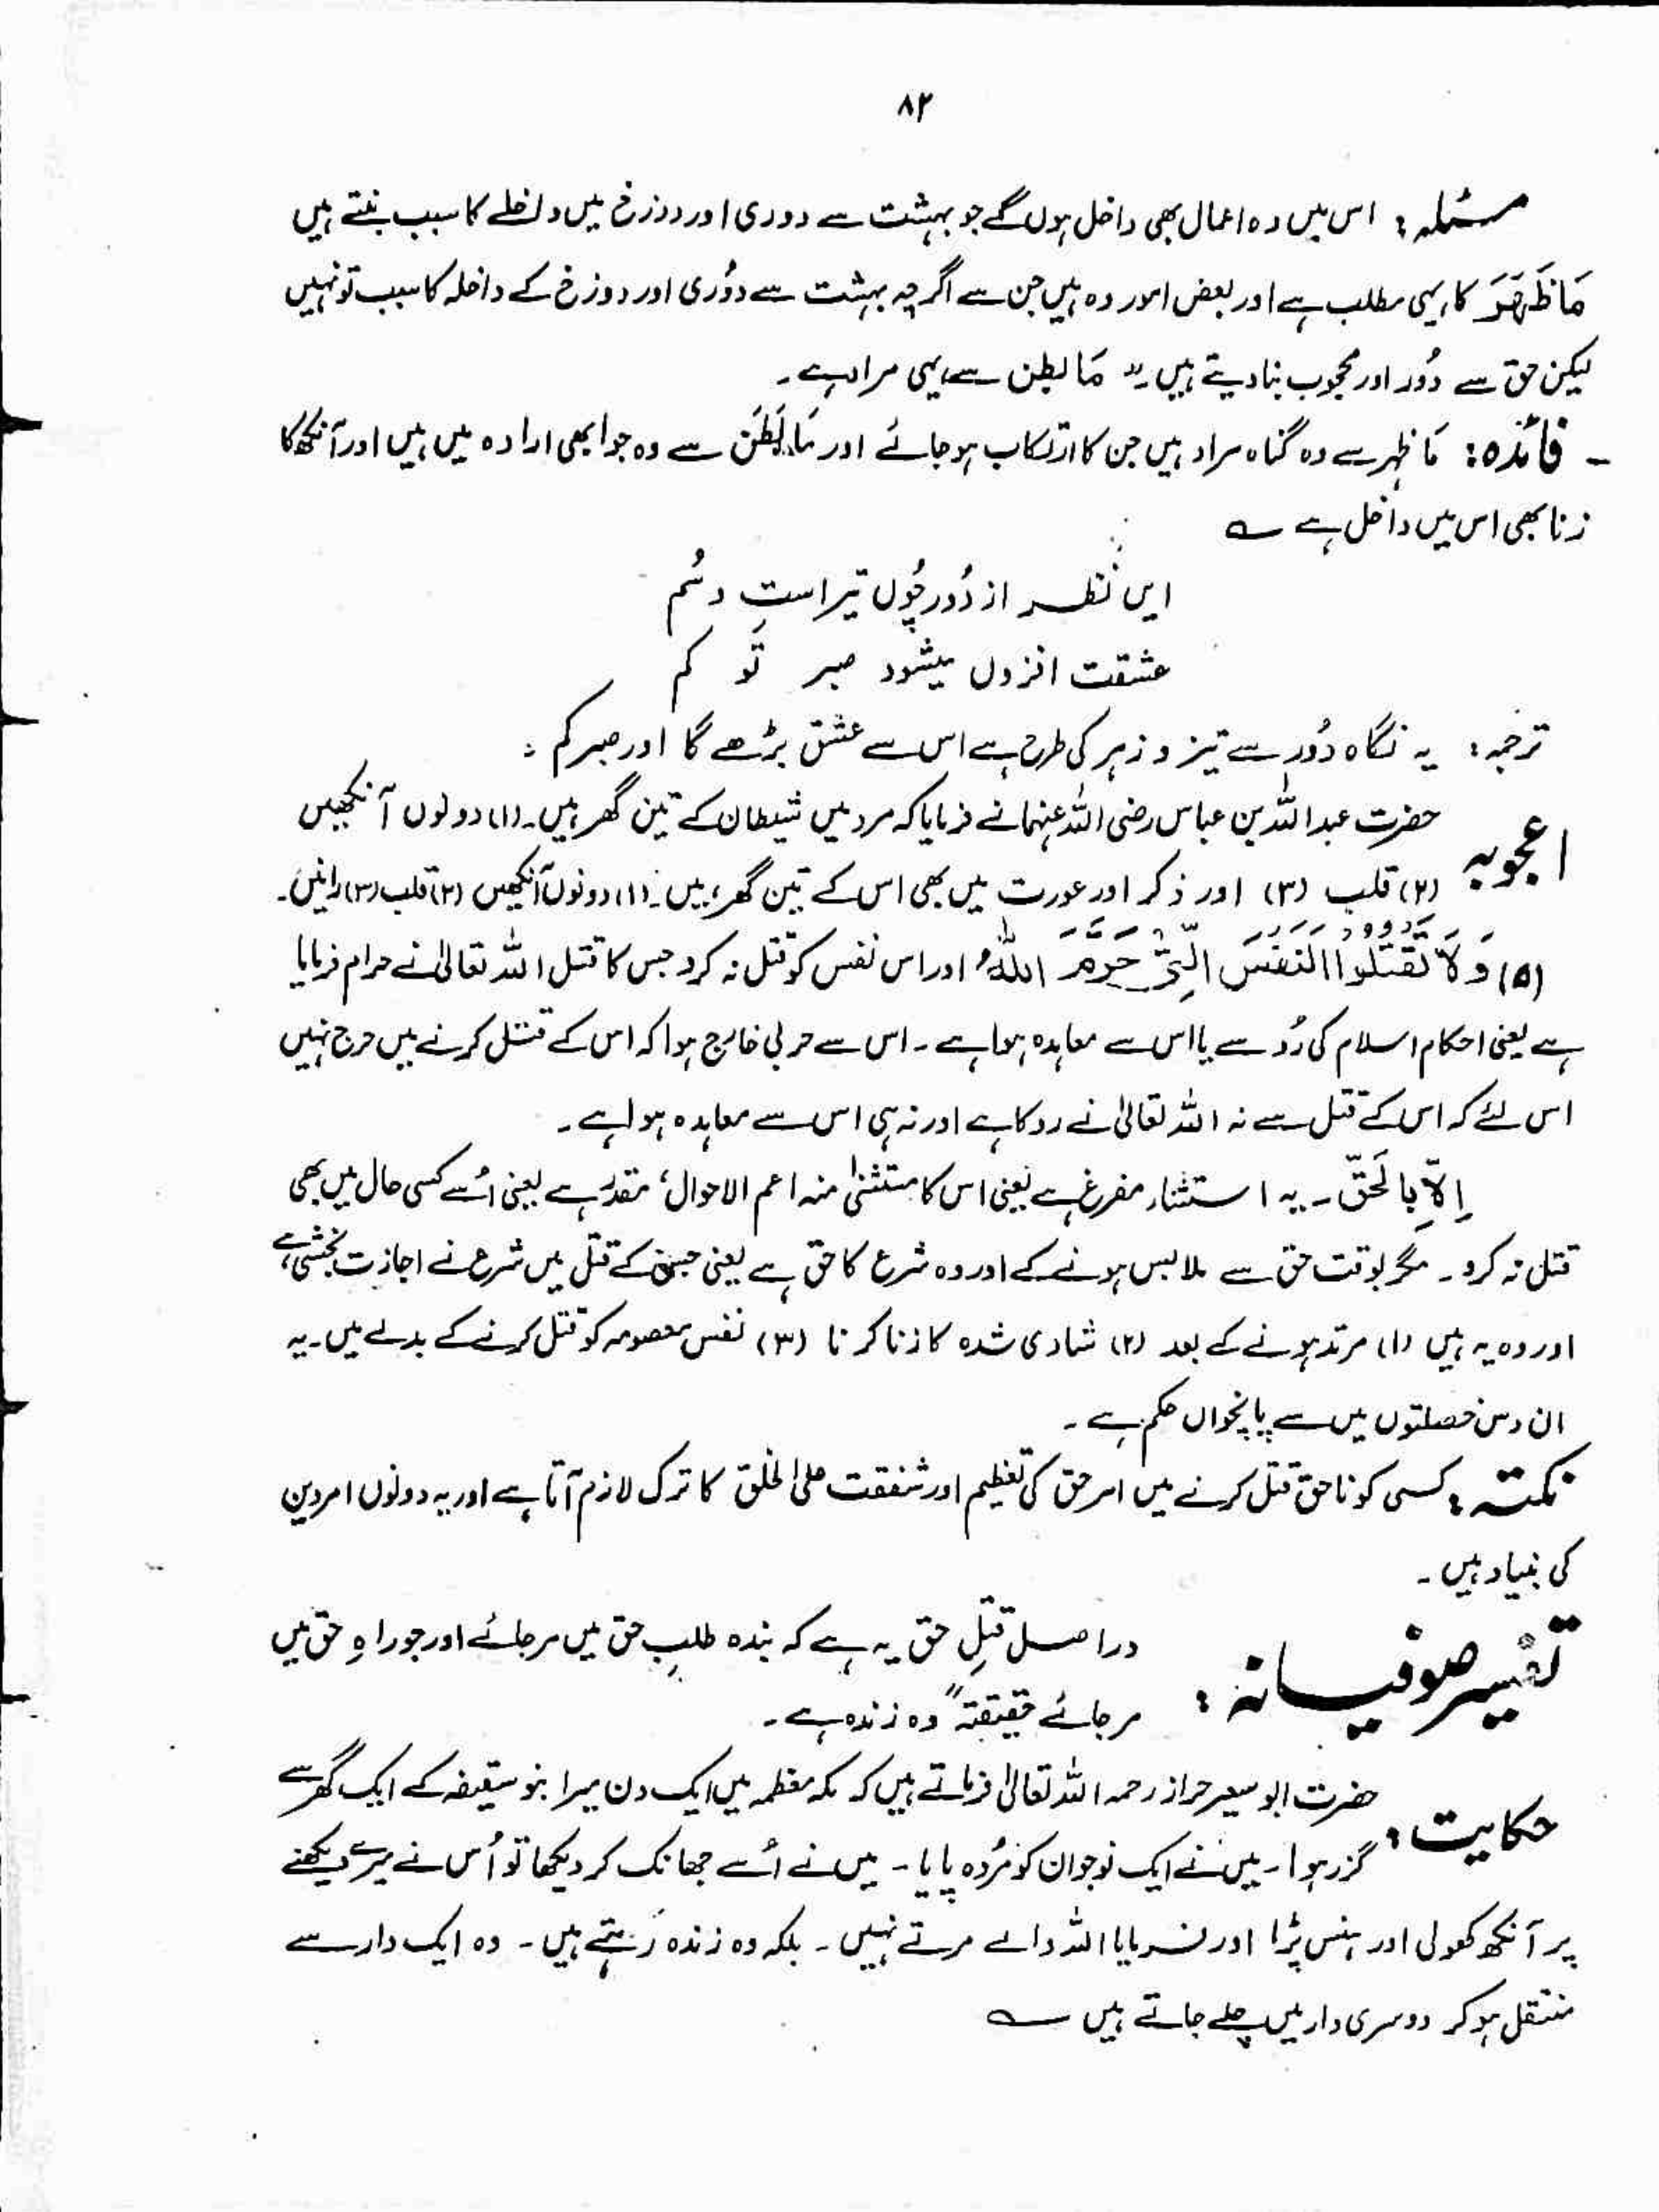 ۸۲
مسئلہ : اس میں وہ اعمال بھی داخل ہوں گے جو بہشت سے دوری اور دوزخ میں داخلے کا سبب بنتے ہیں
مَا ظَهَرَ کا یہی مطلب ہے اور بعض امور وہ ہیں جن سے اگرچہ بہشت سے دُوری اور دوزخ کے داخلہ کا سبب تو نہیں
لیکن حق سے دُور اور محجوب بنا دیتے ہیں ۔" مَا بطن سے یہی مراد ہے ۔
ـ فائدہ : مَا ظہر سے وہ گناہ مراد ہیں جن کا ارتکاب ہو جائے اور مَا بَطَنَ سے وہ جو ابھی ارادہ میں ہیں اور آنکھ کا
زنا بھی اس میں داخل ہے ؎
ایں نظر از دُور چُوں تیر است و سُم
عشقت افزوں میشود صبر تو کم
ترجمہ : یہ نگاہ دُور سے تیز و زہر کی طرح ہے اس سے عشق بڑھے گا اور صبر کم :
اعجوبہ حضرت عبد اللہ بن عباس رضی اللہ عنہما نے فرمایا کہ مرد میں شیطان کے تین گھر ہیں ۔ (۱) دونوں آنکھیں
(۲) قلب (۳) اور ذکر اور عورت میں بھی اس کے تین گھر ہیں ۔ (۱) دونوں آنکھیں (۲) قلب (۳) رانیں ۔
(۵) وَلَا تَقْتُلُوا النَّفْسَ الَّتِیْ حَرَّمَ اللّٰهُ اور اس نفس کو قتل نہ کرو جس کا قتل اللہ تعالیٰ نے حرام فرمایا
ہے یعنی احکام اسلام کی رُو سے یا اس سے معاہدہ ہوا ہے ۔ اس سے حربی خارج ہوا کہ اس کے قتل کرنے میں حرج نہیں
اس لئے کہ اس کے قتل سے نہ اللہ تعالیٰ نے روکا ہے اور نہ ہی اس سے معاہدہ ہوا ہے ۔
اِلَّا بِالْحَقِّ ۔ یہ استثناء مفرغ ہے یعنی اس کا مستثنیٰ منہ اعم الاحوال، مقدّر ہے یعنی اُسے کسی حال میں بھی
قتل نہ کرو ۔ مگر بوقت حق سے ملابس ہونے کے اور وہ شرع کا حق ہے یعنی جس کے قتل میں شرع نے اجازت بخشی ہے
اور وہ یہ ہیں (۱) مرتد ہونے کے بعد (۲) شادی شدہ کا زنا کرنا (۳) نفس معصومہ کو قتل کرنے کے بدلے میں ۔ یہ
ان دس خصلتوں میں سے پانچواں حکم ہے ۔
نکتہ : کسی کو ناحق قتل کرنے میں امر حق کی تعظیم اور شفقت علی الخلق کا ترک لازم آتا ہے اور یہ دونوں امر دین
کی بنیاد ہیں ۔
تفسیر صوفیانہ : دراصل قتلِ حق یہ ہے کہ بندہ طلبِ حق میں مر جائے اور جو راہِ حق میں
مر جائے حقیقتہً وہ زندہ ہے ۔
حکایت : حضرت ابو سعید حراز رحمہ اللہ تعالیٰ فرماتے ہیں کہ مکہ معظمہ میں ایک دن میرا بنو سقیفہ کے ایک گھر سے
گزر ہوا ۔ میں نے ایک نوجوان کو مُردہ پایا ۔ میں نے اُسے جھانک کر دیکھا تو اُس نے میرے دیکھنے
پر آنکھ کھولی اور ہنس پڑا اور فرمایا اللہ والے مرتے نہیں ۔ بلکہ وہ زندہ رہتے ہیں ۔ وہ ایک دار سے
منتقل ہو کر دوسری دار میں چلے جاتے ہیں ؎